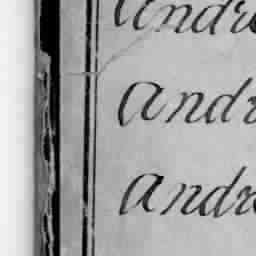 Andre
Andr
Andre